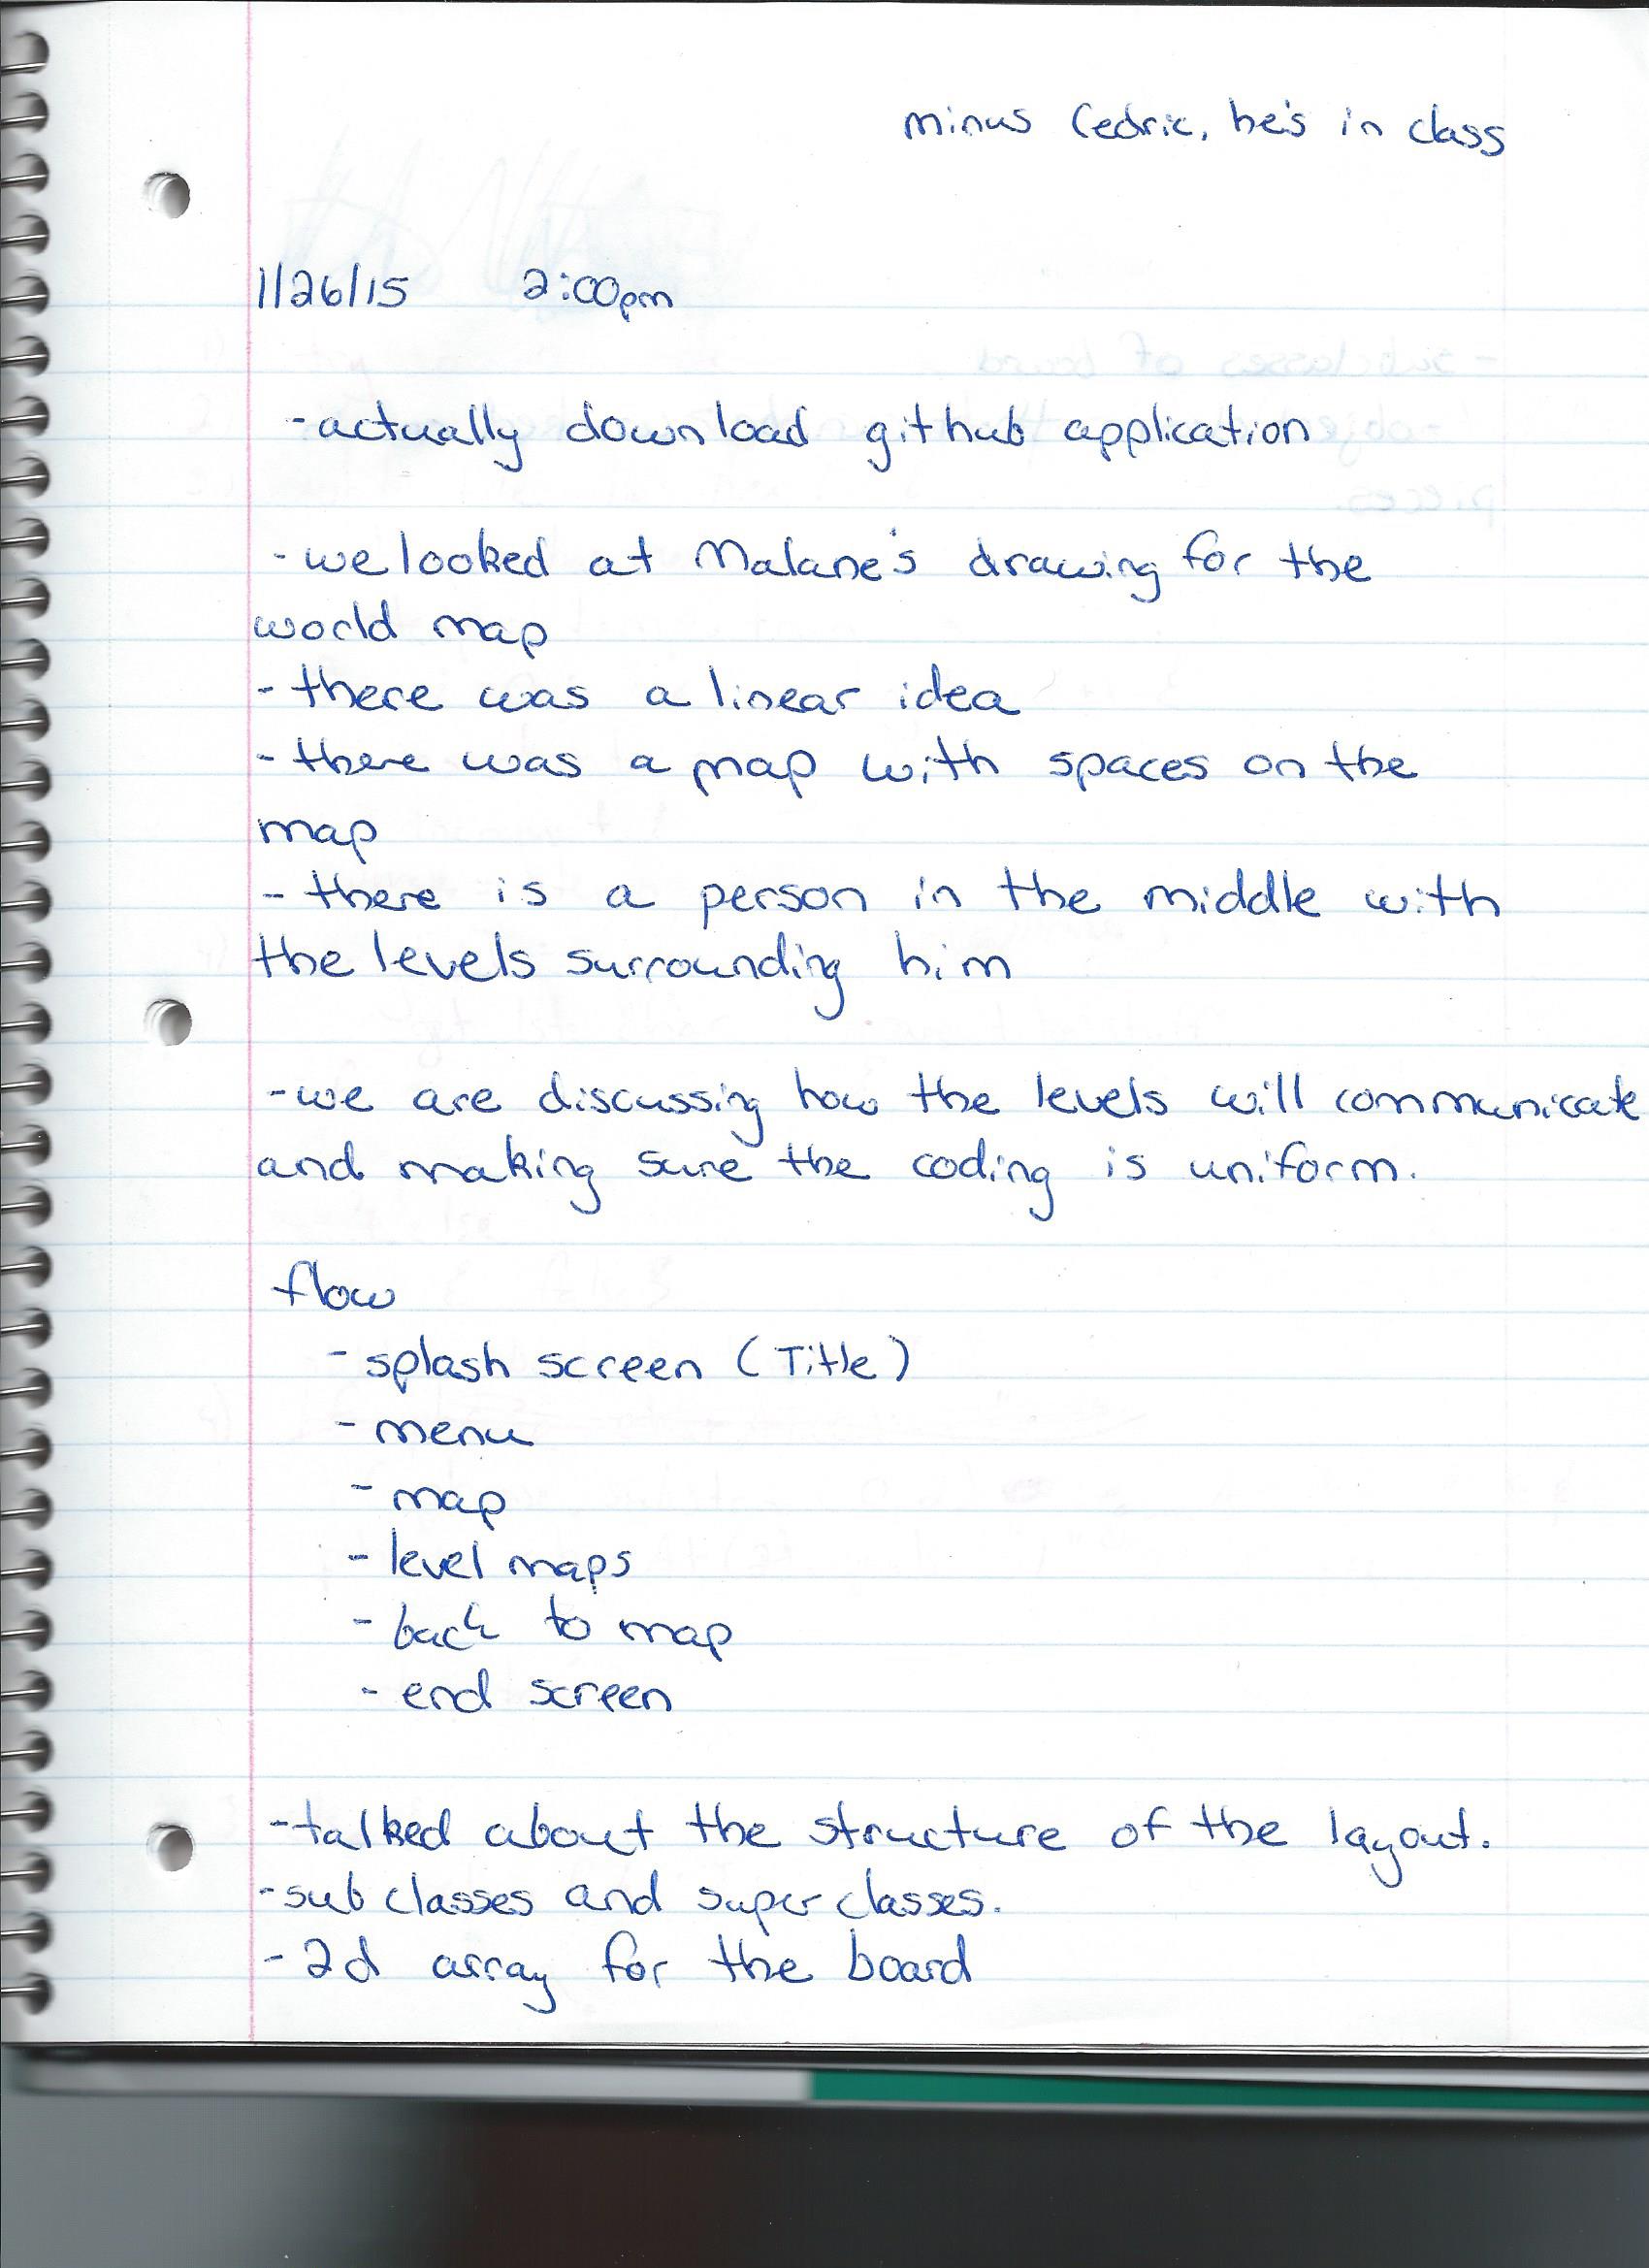 minus Cedric, he's in class
1/26/15 2:00pm
- actually download github application
- we looked at Malane's drawing for the
world map
- there was a linear idea
- there was a map with spaces on the
map
- there is a person in the middle with
the levels surrounding him
- we are discussing how the levels will communicate
and making sure the coding is uniform.
flow
- splash screen (Title)
- menu
- map
- level maps
- back to map
- end screen
- talked about the structure of the layout.
- sub classes and super classes.
- 2d array for the board